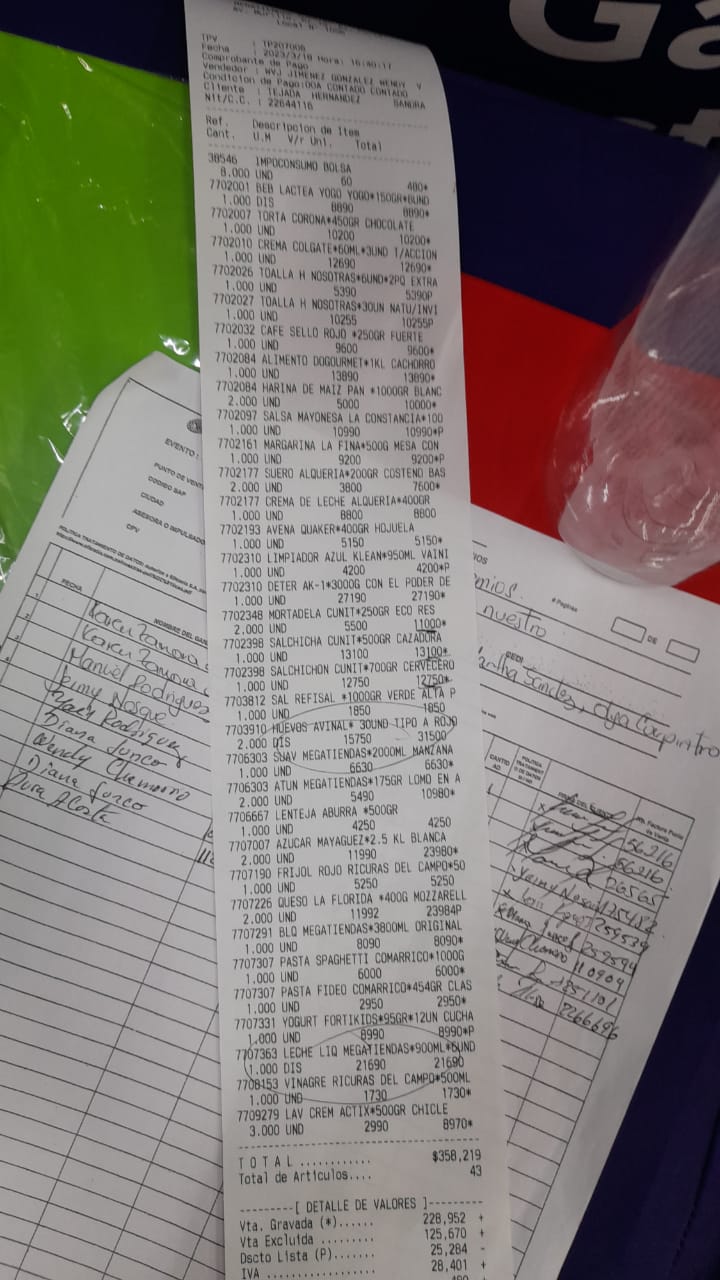 TPV : TP207006
Fecha : 2023/3/18 Hora: 16:40:17
Comprobante de Pago
Vendedor : WVJ JIMENEZ GONZALEZ WENDY V
Condicion de Pago:00A CONTADO CONTADO
Cliente : TEJADA HERNANDEZ SANDRA
Nit/C.C. : 22644116
Ref. Descripcion de Item
Cant. U.M V/r Uni. Total
38546 IMPOCONSUMO BOLSA
8.000 UND 60 480*
7702001 BEB LACTEA YOGO YOGO*150GR*6UND
1.000 DIS 8890 8890*
7702007 TORTA CORONA*450GR CHOCOLATE
1.000 UND 10200 10200*
7702010 CREMA COLGATE*60ML*3UND T/ACCION
1.000 UND 12690 12690*
7702026 TOALLA H NOSOTRAS*6UND*2PQ EXTRA
1.000 UND 5390 5390P
7702027 TOALLA H NOSOTRAS*30UN NATU/INVI
1.000 UND 10255 10255P
7702032 CAFE SELLO ROJO *250GR FUERTE
1.000 UND 9600 9600*
7702084 ALIMENTO DOGOURMET*1KL CACHORRO
1.000 UND 13890 13890*
7702084 HARINA DE MAIZ PAN *1000GR BLANC
2.000 UND 5000 10000*
7702097 SALSA MAYONESA LA CONSTANCIA*100
1.000 UND 10990 10990*P
7702161 MARGARINA LA FINA*500G MESA CON
1.000 UND 9200 9200*P
7702177 SUERO ALQUERIA*200GR COSTENO BAS
2.000 UND 3800 7600*
7702177 CREMA DE LECHE ALQUERIA*400GR
1.000 UND 8800 8800
7702193 AVENA QUAKER*400GR HOJUELA
1.000 UND 5150 5150*
7702310 LIMPIADOR AZUL KLEAN*950ML VAINI
1.000 UND 4200 4200*P
7702310 DETER AK-1*3000G CON EL PODER DE
1.000 UND 27190 27190*
7702348 MORTADELA CUNIT*250GR ECO RES
2.000 UND 5500 11000*
7702398 SALCHICHA CUNIT*500GR CAZADORA
1.000 UND 13100 13100*
7702398 SALCHICHON CUNIT*700GR CERVECERO
1.000 UND 12750 12750*
7703812 SAL REFISAL *1000GR VERDE ALTA P
1.000 UND 1850 1850
7703910 HUEVOS AVINAL* 30UND TIPO A ROJO
2.000 DIS 15750 31500
7706303 SUAV MEGATIENDAS*2000ML MANZANA
1.000 UND 6630 6630*
7706303 ATUN MEGATIENDAS*175GR LOMO EN A
2.000 UND 5490 10980*
7706667 LENTEJA ABURRA *500GR
1.000 UND 4250 4250
7707007 AZUCAR MAYAGUEZ*2.5 KL BLANCA
2.000 UND 11990 23980*
7707190 FRIJOL ROJO RICURAS DEL CAMPO*50
1.000 UND 5250 5250
7707226 QUESO LA FLORIDA *400G MOZZARELL
2.000 UND 11992 23984P
7707291 BLQ MEGATIENDAS*3800ML ORIGINAL
1.000 UND 8090 8090*
7707307 PASTA SPAGHETTI COMARRICO*1000G
1.000 UND 6000 6000*
7707307 PASTA FIDEO COMARRICO*454GR CLAS
1.000 UND 2950 2950*
7707331 YOGURT FORTIKIDS*95GR*12UN CUCHA
1.000 UND 8990 8990*P
7707363 LECHE LIQ MEGATIENDAS*900ML*6UND
1.000 DIS 21690 21690
7708153 VINAGRE RICURAS DEL CAMPO*500ML
1.000 UND 1730 1730*
7709279 LAV CREM ACTIX*500GR CHICLE
3.000 UND 2990 8970*
TOTAL ............ $358,219
Total de Articulos.... 43
---------[ DETALLE DE VALORES ]---------
Vta. Gravada (*)...... 228,952 +
Vta Excluida ......... 125,670 +
Dscto Lista (P)....... 25,284 -
IVA .................. 28,401 +
EVENTO :
PUNTO DE VENT
CODIGO SAP
CIUDAD
ASESORA O IMPULSADO
CPV
FECHA
NOMBRE DEL GAN
Karen Zamora
Karen Zamora
Manuel Rodriguez
Yeimy Nosque
Yair Rodriguez
Diana Junco
Wendy Chamorro
Diana Junco
Dura Acosta
# Paginas
DE
nuestro
56216
56216